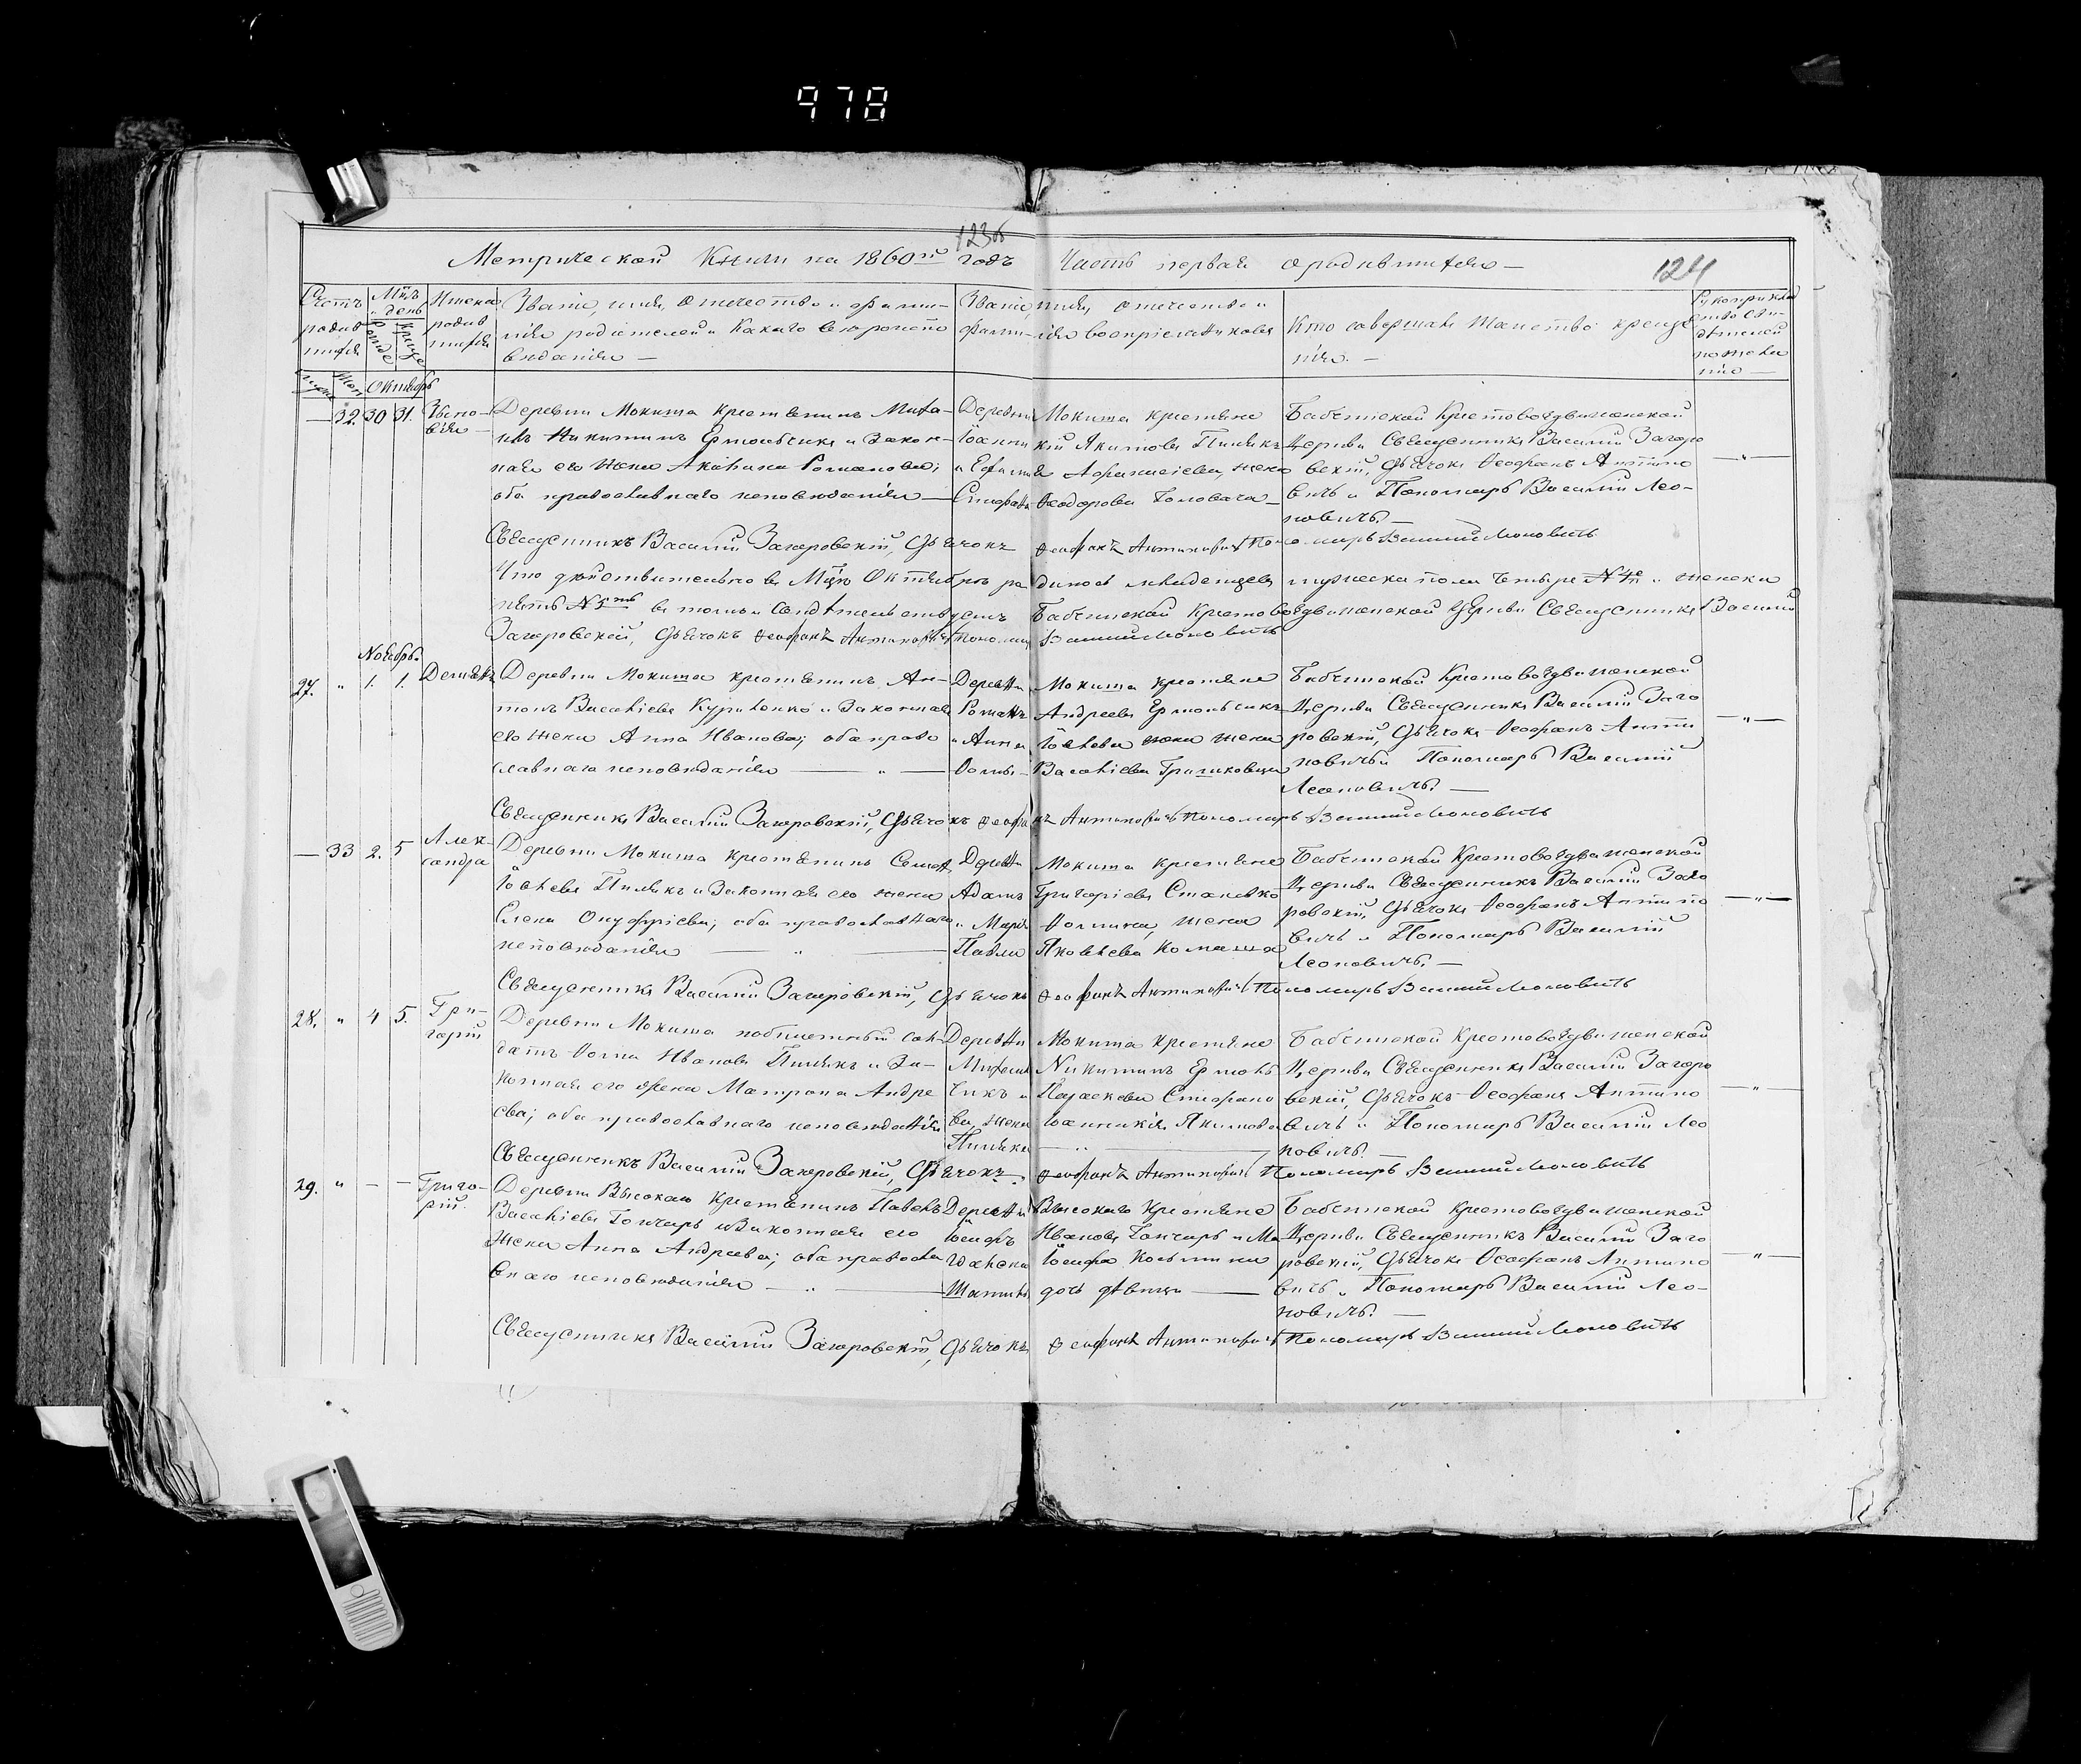 978
123об
124
Метрической Книги на 1860й годъ Часть первая о родившихся —
Счетъ родившихся
Мцъ и день
рожде
креще
Имена родившихся
Званіе, имя, отчество и фами-
лія родителей и какаго вѣроиспо
вѣданія —
Званіе, имя, отчество и
фами-лія воспріемниковъ
Кто совершалъ таинство креще
нія. —
Рукоприклад
ство сви-
дѣтелей
по жела
нію —
Октябрь
— 32. 30 31.
Деревни Мокиша крестьянинъ Миха-
илъ Никитинъ Ермольчикъ и Закон-
ная его жена Акилина Романова;
оба православнаго исповѣданія —
Деревни Мокиша крестьяне
Іоанникій Якимовъ Пилякъ
и Евфимія Афанасіева, жена
Стефана Ѳеодорова Головача —
Бабчинской Крестовоздвиженской
Церкви Священникъ Василій Загоро
вскій, Дьячокъ Ѳеофанъ Антино
вичъ и Пономарь Василій Лео-
новичъ. —
Священникъ Василій Загоровскій, Дьячокъ Ѳеофанъ Антиновичъ Пономарь Василий Леоновичъ
Что дѣйствительно въ Мцѣ Октябрѣ родилось младенцевъ мужеска пола четыре №4е и женска
пять №5ть въ томъ и Свидѣтельствуетъ Бабчинской Крестовоздвиженской Церкви Священникъ Василій
Загоровскій, Дьячокъ Ѳеофанъ Антиновичъ Пономарь Василий Леоновичъ
Ноябрь.
27. " 1. 1. Деміанъ
Деревни Мокиша крестьянинъ Ан-
тонъ Васильевъ Куриленко и Законная
его жена Анна Иванова; оба право
славнаго исповѣданія — " —
Деревни Мокиша крестьяне
Романъ Андреевъ Ермольчикъ
и Анна Іовлева жена
Ѳомы Васильева Гришковца
Бабчинской Крестовоздвиженской
Церкви Священникъ Василій Заго
ровскій, Дьячокъ Ѳеофанъ Анти
новичъ и Пономарь Василій
Леоновичъ. —
Священникъ Василій Загоровскій, Дьячокъ Ѳеофанъ Антиновичъ Пономарь Василий Леоновичъ
— 33 2. 5 Алек-
сандра
Деревни Мокиша крестьянинъ
Іовлевъ Пилякъ и Законная его жена
Елена Онуфріева; оба православнаго
исповѣданія — " —
Деревни Мокиша крестьяне
Адамъ Григоріевъ
и Марія Ѳомина, жена
Павла Яковлева
Бабчинской Крестовоздвиженской
Церкви Священникъ Василій Заго
ровскій, Дьячокъ Ѳеофанъ Антино
вичъ и Пономарь Василій
Леоновичъ. —
Священникъ Василій Загоровскій, Дьячокъ Ѳеофанъ Антиновичъ Пономарь Василий Леоновичъ
28. " 4 5. Гри-
горій
Деревни Мокиша сол
датъ Ѳома Ивановъ Пилякъ и За-
конная его жена Матрона Андре
ева; оба православнаго исповѣданія
Деревни Мокиша крестьяне
Михаилъ Никитинъ Ермоль
чикъ и Параскева Стефано
ва, жена Іоанникія Якимова
Пиляка — " —
Бабчинской Крестовоздвиженской
Церкви Священникъ Василій Загоро
вскій, Дьячокъ Ѳеофанъ Антино
вичъ и Пономарь Василій Лео
новичъ. —
Священникъ Василій Загоровскій, Дьячокъ Ѳеофанъ Антиновичъ Пономарь Василий Леоновичъ
29. " — — Григо-
рій.
Деревни Высокаго крестьянинъ Павелъ
Васильевъ Гончаръ и Законная его
жена Анна Андреева; оба правосла
внаго исповѣданія — " —
Деревни Высокаго Крестьяне
Іосифъ Ивановъ Гончаръ и Ма
Іосифа Косьмина
дочь дѣвица —
Бабчинской Крестовоздвиженской
Церкви Священникъ Василій Заго
ровскій, Дьячокъ Ѳеофанъ Антино
вичъ и Пономарь Василій Лео-
новичъ. —
Священникъ Василій Загоровскій, Дьячокъ Ѳеофанъ Антиновичъ Пономарь Василий Леоновичъ